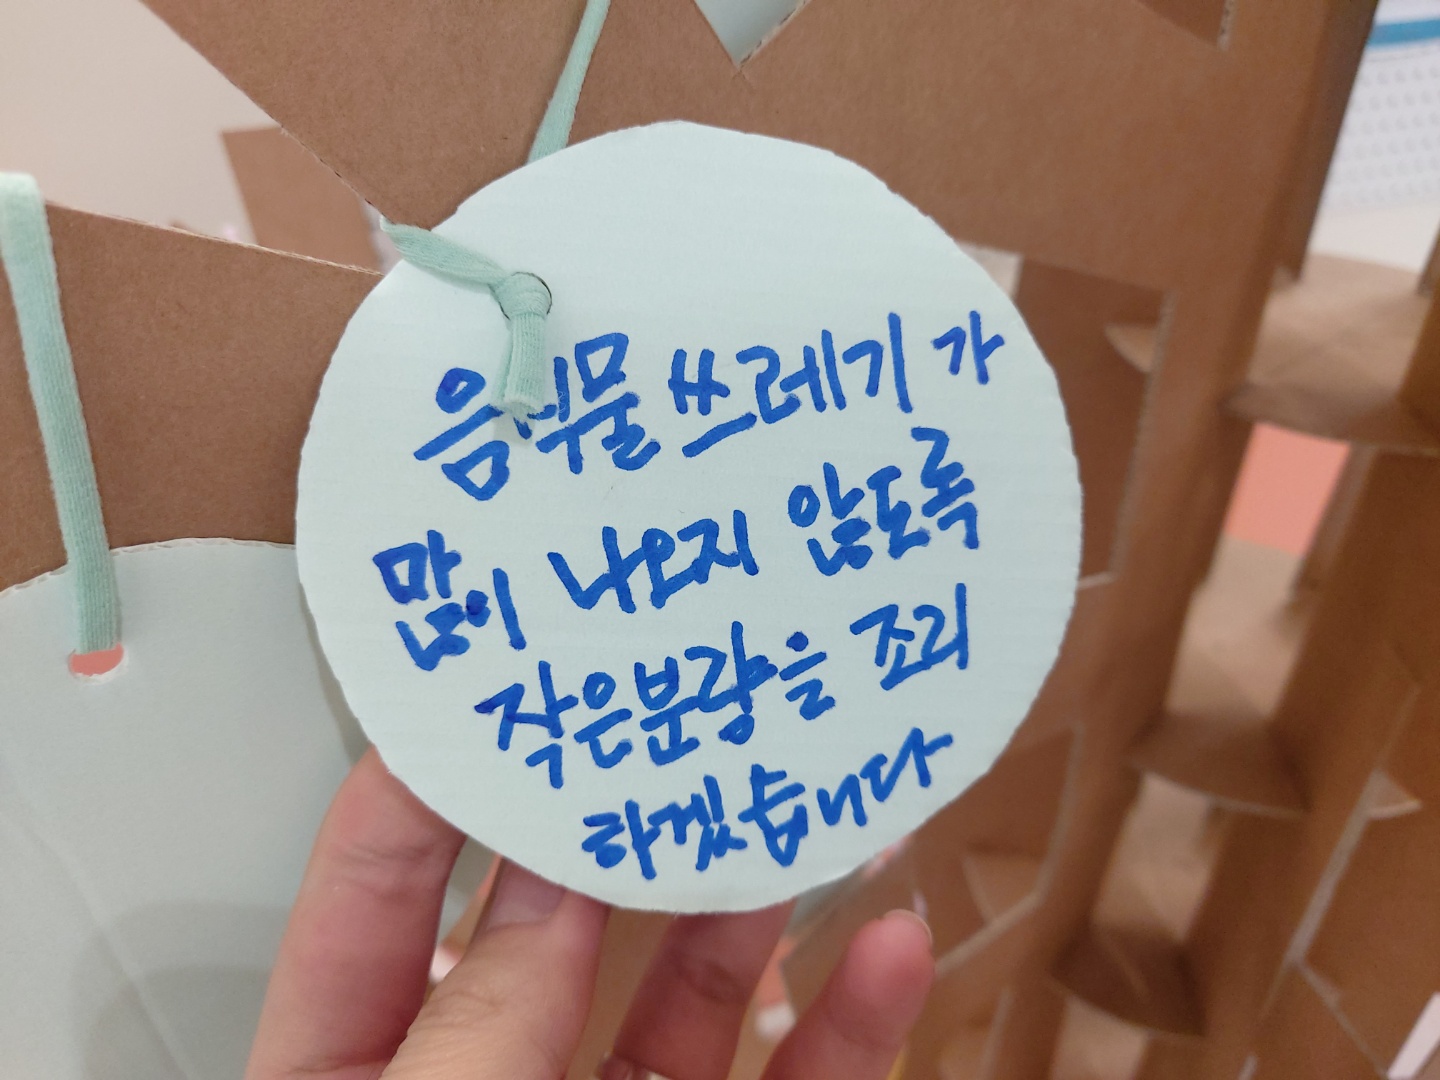 음식물 쓰레기가
많이 나오지 않도록
작은분량을 조리
하겠습니다